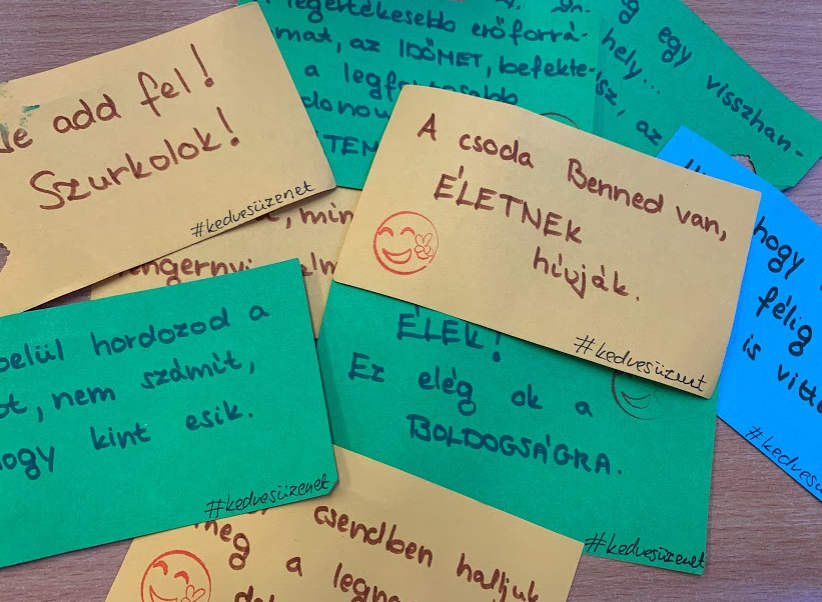 add fel!
Szurkolok!
#kedvesüzenet
legértékesebb erőforrá-
mat, az IDŐMET, befekte-
a
g egy visszhan-
hely...
az
A csoda Benned van,
ÉLETNEK
hívják.
#kedvesüzenet
hogy
félig
is
belül hordozod a
ot, nem számít,
hogy kint esik.
#kedvesüzenet
ÉLEK!
Ez elég ok a
BOLDOGSÁGRA.
#kedvesüzenet
csendben halljuk
meg a